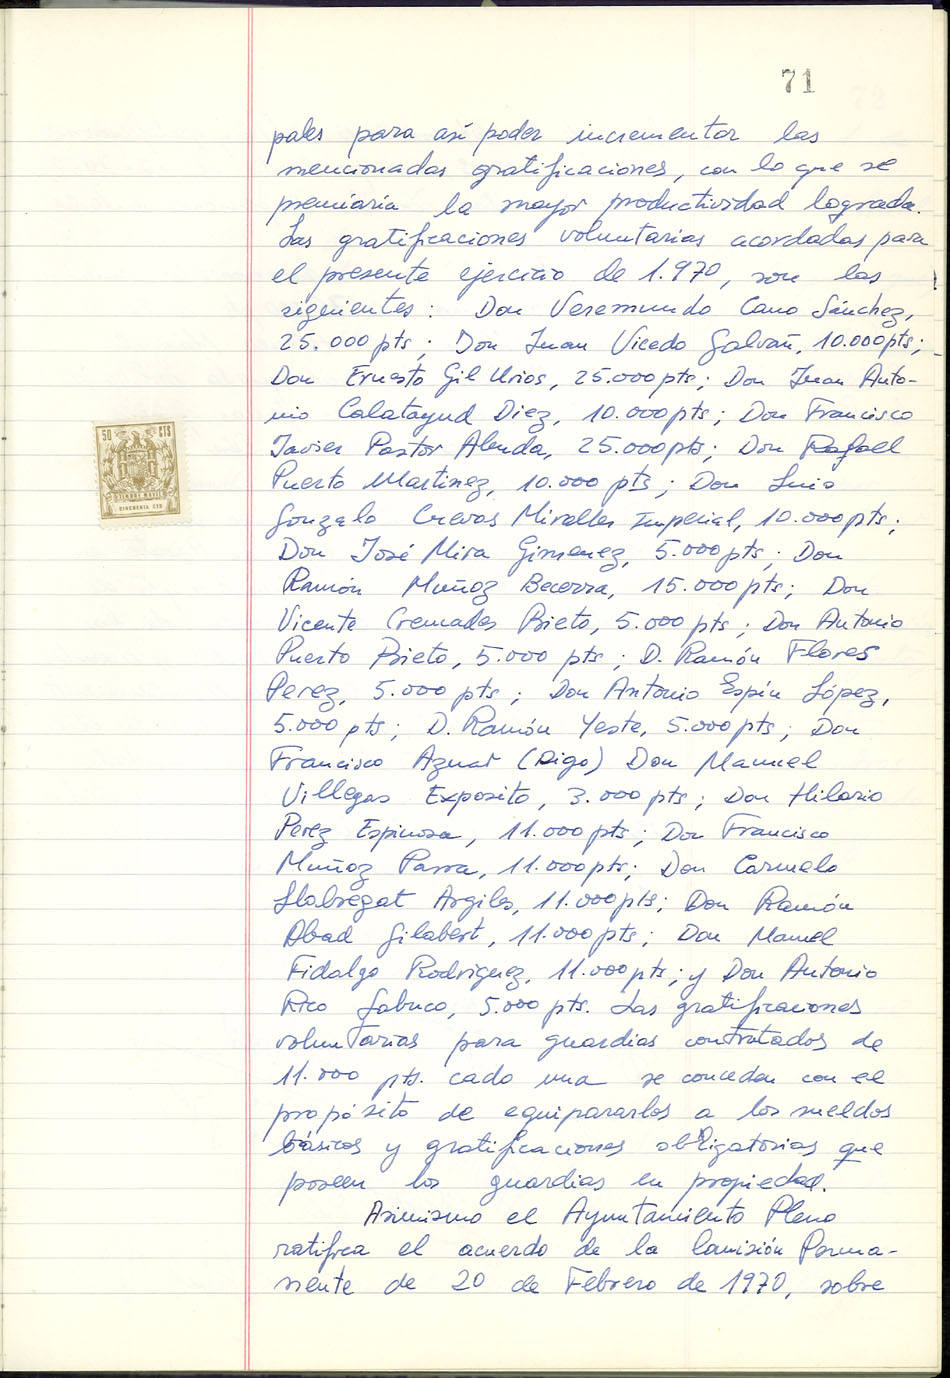 71
pales para así poder incrementar las
mencionadas gratificaciones, con lo que se
premiaria la mayor productividad lograda.
Las gratificaciones voluntarias acordadas para
el presente ejercicio de 1.970, son las
sigientes: Don Veremundo Cano Sánchez,
25.000 pts; Don Juan Vicedo Galvañ, 10.000 pts;
Don Ernesto Gil Urios, 25.000 pts; Don Juan Anto-
nio Calatayud Diez, 10.000 pts; Don Francisco
Javier Pastor Alenda, 25.000 pts; Don Rafael
Puerto Martinez, 10.000 pts; Don Luis
Gonzalo Cuevas Miralles Imperial, 10.000 pts;
Don José Mira Gimenez, 5.000 pts; Don
Ramón Muñoz Becerra, 15.000 pts; Don
Vicente Cremades Prieto, 5.000 pts; Don Antonio
Puerto Prieto, 5.000 pts; D. Ramón Flores
Perez, 5.000 pts; Don Antonio Espín López,
5.000 pts; D. Ramón Yeste, 5.000 pts; Don
Francisco Aznar (Digo) Don Manuel
Villegas Exposito, 3.000 pts; Don Hilario
Perez Espinosa, 11.000 pts; Don Francisco
Muñoz Parra, 11.000 pts; Don Carmelo
Llobregat Argiles, 11.000 pts; Don Ramón
Abad Gilabert, 11.000 pts; Don Manuel
Fidalgo Rodriguez, 11.000 pts; y Don Antonio
Rico Jabuco, 5.000 pts. Las gratificaciones
voluntarias para guardias contratados de
11.000 pts. cada una se conceden con el
propósito de equipararlos a los sueldos
básicos y gratificaciones obligatorias que
poseen los guardias en propiedad.
Asimismo el Ayuntamiento Pleno
ratifica el acuerdo de la Comisión Perma-
nente de 20 de Febrero de 1970, sobre
50 CTS
TIMBRE MOVIL
CINCUENTA CTS